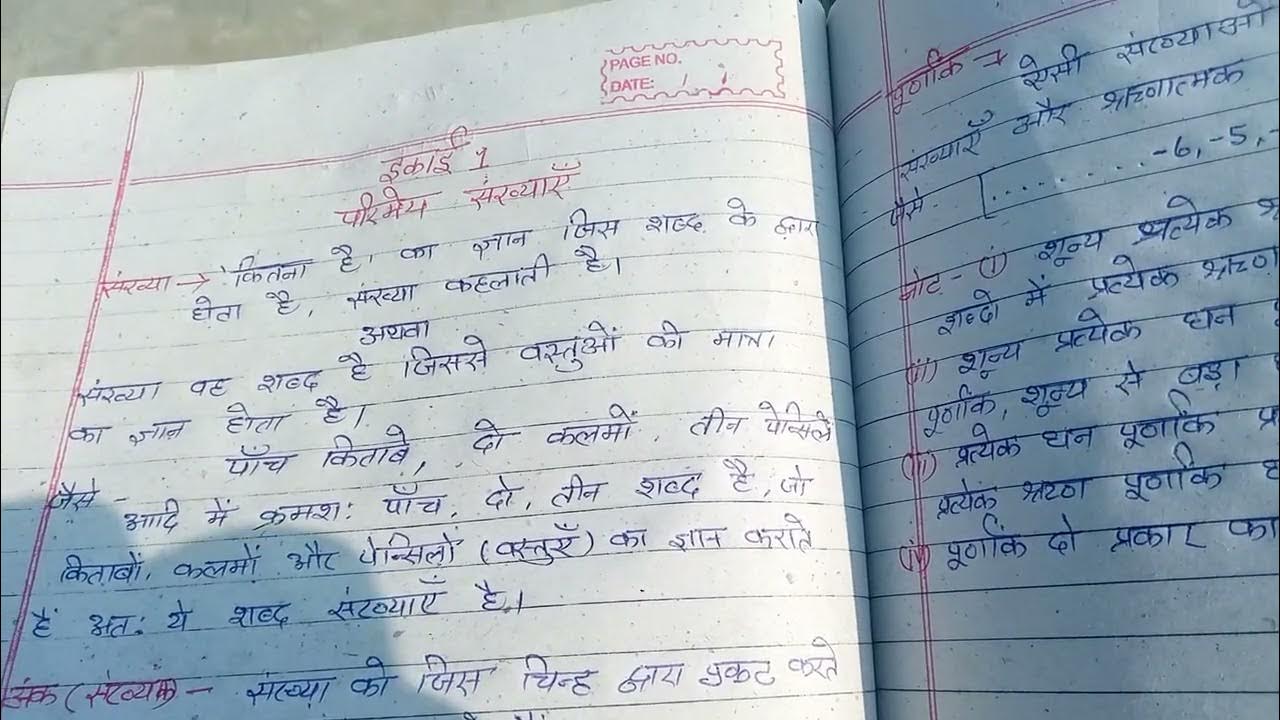 PAGE NO.
DATE:
इकाई 1
परिमेय संख्याएँ
संख्या → 'कितना है' का ज्ञान जिस शब्द के द्वारा
होता है, संख्या कहलाती है।
अथवा
संख्या वह शब्द है जिससे वस्तुओं की मात्रा
का ज्ञान होता है।
जैसे - पाँच किताबे, दो कलमों, तीन पेन्सिलें
आदि में क्रमश: पाँच, दो, तीन शब्द है, जो
किताबों, कलमों और पेन्सिलों (वस्तुएँ) का ज्ञान कराते
हैं अत: ये शब्द संख्याएँ है।
अंक (संख्यांक) - संख्या को जिस चिन्ह द्वारा प्रकट करते
पूर्णांक → ऐसी संख्याओं
संख्याएँ और ऋणात्मक
जैसे [........-6, -5, -
नोट - (i) शून्य प्रत्येक
शब्दो में प्रत्येक ऋण
(ii) शून्य प्रत्येक धन
पूर्णांक, शून्य से बड़ा
(iii) प्रत्येक धन पूर्णांक
प्रत्येक ऋण पूर्णांक
(iv) पूर्णांक दो प्रकार का